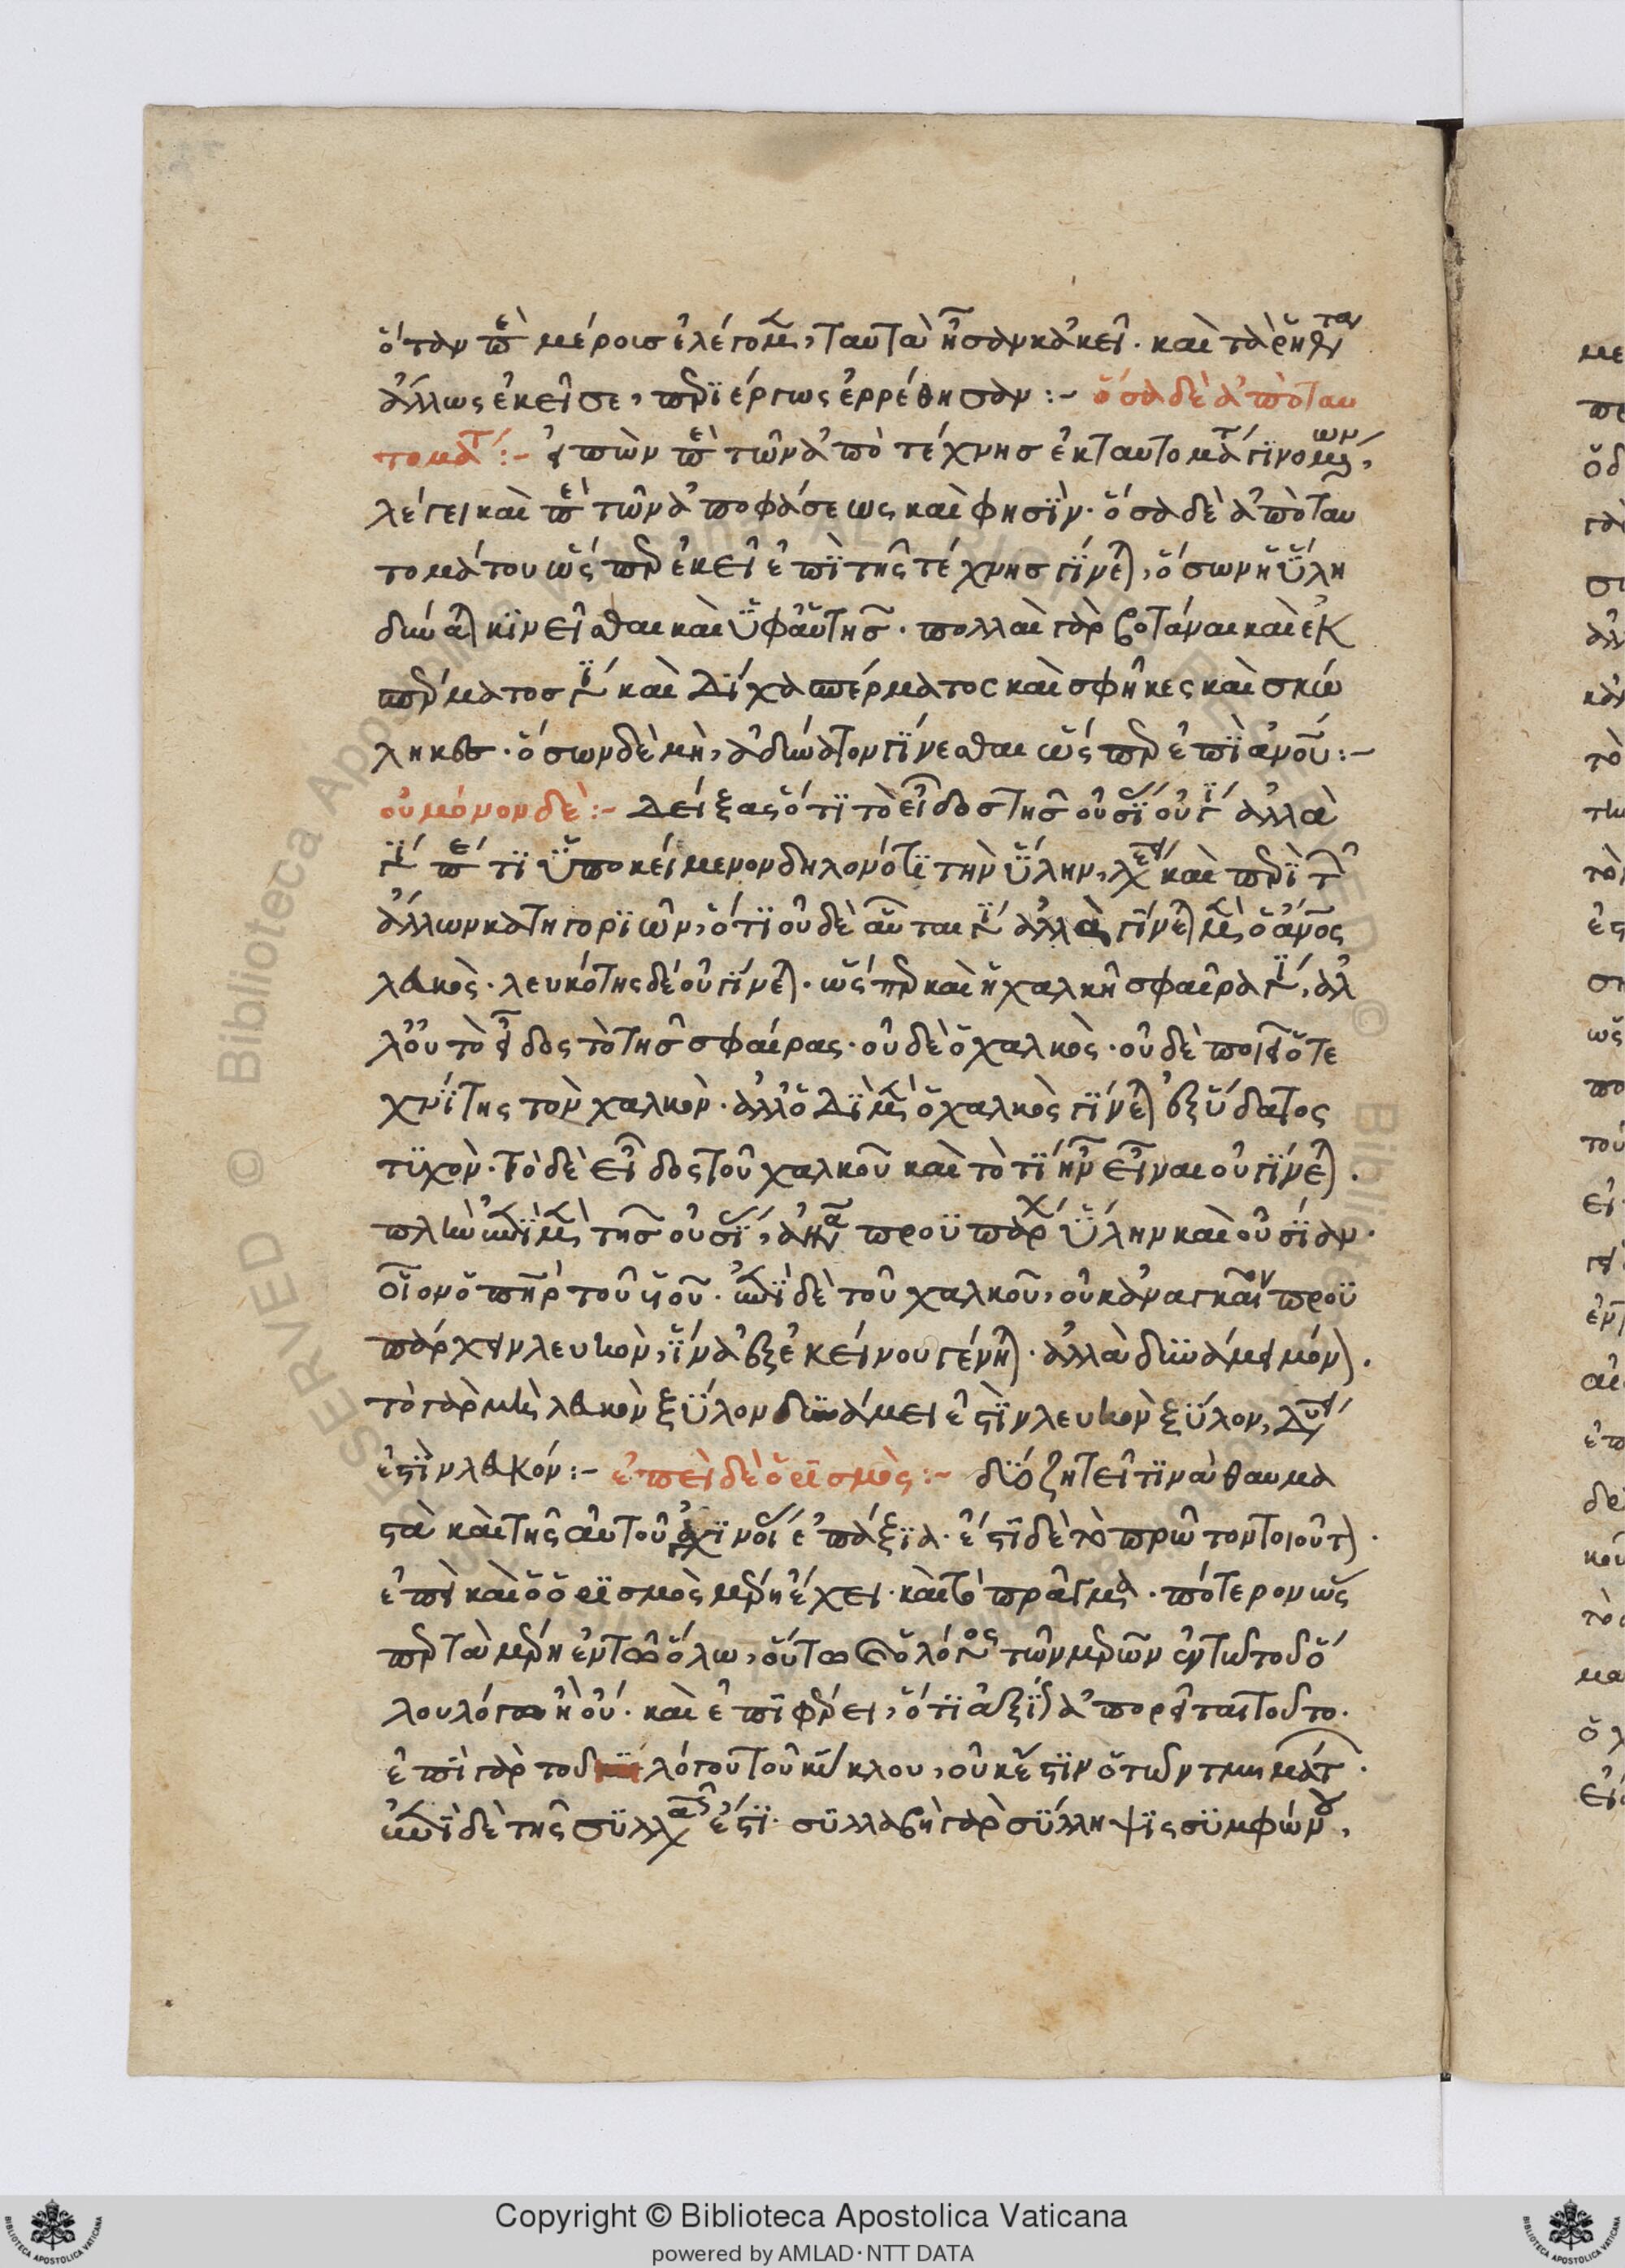 ὅταν περὶ μέρους ἐλέγομεν, ταῦτα ἦσαν κἀκεῖ. καὶ τὰ ῥηθέντα
ἄλλως ἐκεῖσε, περιέργως ἐρρέθησαν :- ὅσα δὲ ἀπὸ ταυ
τομάτ :- εἰπὼν περὶ τῶν ἀπὸ τέχνης ἐκ ταυτομάτ γινομένων,
λέγει καὶ περὶ τῶν ἀποφάσεως καὶ φησὶν. ὅσα δὲ ἀπὸ ταυ
τομάτου ὥσπερ ἐκεῖ ἐπὶ τῆς τέχνης γίνεται, ὅσων ἡ ὕλη
δύναται κινεῖσθαι καὶ ὑφ' αὑτῆς. πολλαὶ γὰρ βοτάναι καὶ ἐκ
σπέρματος γίνονται καὶ δίχα σπέρματος καὶ σφῆκες καὶ σκώ
ληκες. ὅσων δὲ μὴ, ἀδύνατον γίνεσθαι ὥσπερ ἐπὶ ἀνοῦ :-
οὐ μόνον δὲ :- Δείξας ὅτι τὸ εἶδος τῆς οὐσίας οὐ γίνεται ἀλλὰ
γίνεται περὶ τι ὑποκείμενον δηλονότι τὴν ὕλην, λέγει καὶ περὶ τῶν
ἄλλων κατηγοριῶν, ὅτι οὐδὲ αὗται γίνονται ἀλλὰ γίνεται μὲν ὁ ἄνος
λευκὸς. λευκότης δὲ οὐ γίνεται. ὥσπερ καὶ ἡ χαλκῆ σφαῖρα γίνεται, ἀλ
λ' οὐ τὸ εἶδος τὸ τῆς σφαίρας. οὐδὲ ὁ χαλκὸς. οὐδὲ ποιεῖ ὁ τε
χνίτης τὸν χαλκὸν. ἀλλ' ὁ Δὶ μὲν ὁ χαλκὸς γίνεται ἐξ ὕδατος
τυχὸν. τὸ δὲ εἶδος τοῦ χαλκοῦ καὶ τὸ τί ἦν εἶναι οὐ γίνεται.
πλὴν ἐπὶ μὲν τῆς οὐσίας, ἀνάγκη προϋπάρχειν ὕλην καὶ οὐσίαν.
οἷον ὁ πηρ τοῦ υἱοῦ. ἐπὶ δὲ τοῦ χαλκοῦ, οὐκ ἀναγκαῖον προϋ
πάρχειν λευκὸν, ἵνα ἐξ ἐκείνου γένηται. ἀλλὰ δυνάμει μόνον.
τὸ γὰρ μὴ λευκὸν ξύλον δυνάμει ἐστὶν λευκὸν ξύλον, δυνάμει
ἐστὶν λευκόν :- ἐπεὶ δὲ ὁρισμὸς :- δύο ζητεῖ τινὰ θαυμα
στὰ καὶ τῆς αὐτοῦ ἀγχινοίας ἐπάξια. ἔστι δὲ τὸ πρῶτον τοιοῦτον.
ἐπεὶ καὶ ὁ ὁρισμὸς μέρη ἔχει. καὶ τὸ πρᾶγμα. πότερον ὥσ
περ τὰ μέρη ἐν τῷ ὅλω, οὕτω καὶ ὁ λόγος τῶν μερῶν ἐν τῶ τοῦ ὅ
λου λόγω ἢ οὔ. καὶ ἐπιφέρει, ὅτι ἀξίως ἀπορεῖται τοῦτο.
ἐπὶ γὰρ τοῦ λόγου τοῦ κύκλου, οὐκ ἔστιν ὁ τῶν τμημάτων.
ἐπὶ δὲ τῆς συλλαβῆς ἔστι. συλλαβὴ γὰρ σύλληψις συμφώνου,